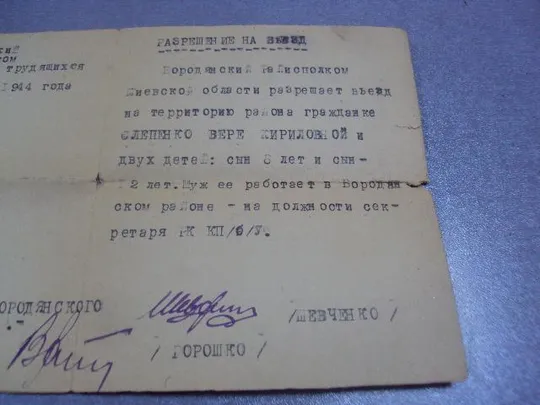 РАЗРЕШЕНИЕ НА ВЪЕЗД
кий
ком
трудящихся
1944 года
Бородянский Райисполком
Киевской области разрешает въезд
на территорию района гражданке
СЛЕПЕНКО ВЕРЕ КИРИЛОВНОЙ и
двух детей: сын 8 лет и сын-
12 лет. Муж ее работает в Бородян
ском районе - на должности сек-
ретаря РК КП/б/У.
ОРОДЯНСКОГО
/ШЕВЧЕНКО/
/ГОРОШКО/